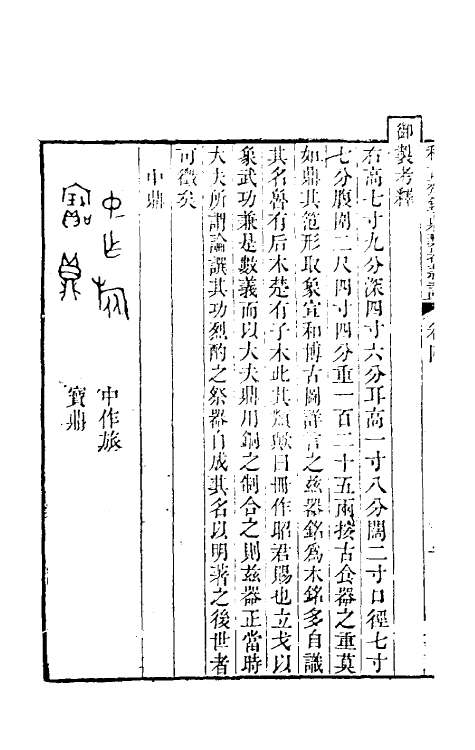 御製考釋
右高七寸九分深四寸六分耳高一寸八分闊二寸口徑七寸
七分腹圍二尺四寸四分重一百二十五兩按古食器之重莫
如鼎其范形取象宣和博古圖詳言之茲器銘爲木銘多自識
其名魯有后木楚有子木此其類歟曰冊作昭君賜也立戈以
象武功兼是數義而以大夫鼎用銅之制合之則茲器正當時
大夫所謂論譔其功烈酌之祭器自成其名以明著之後世者
可徵矣
中鼎
中作旅
寶鼎